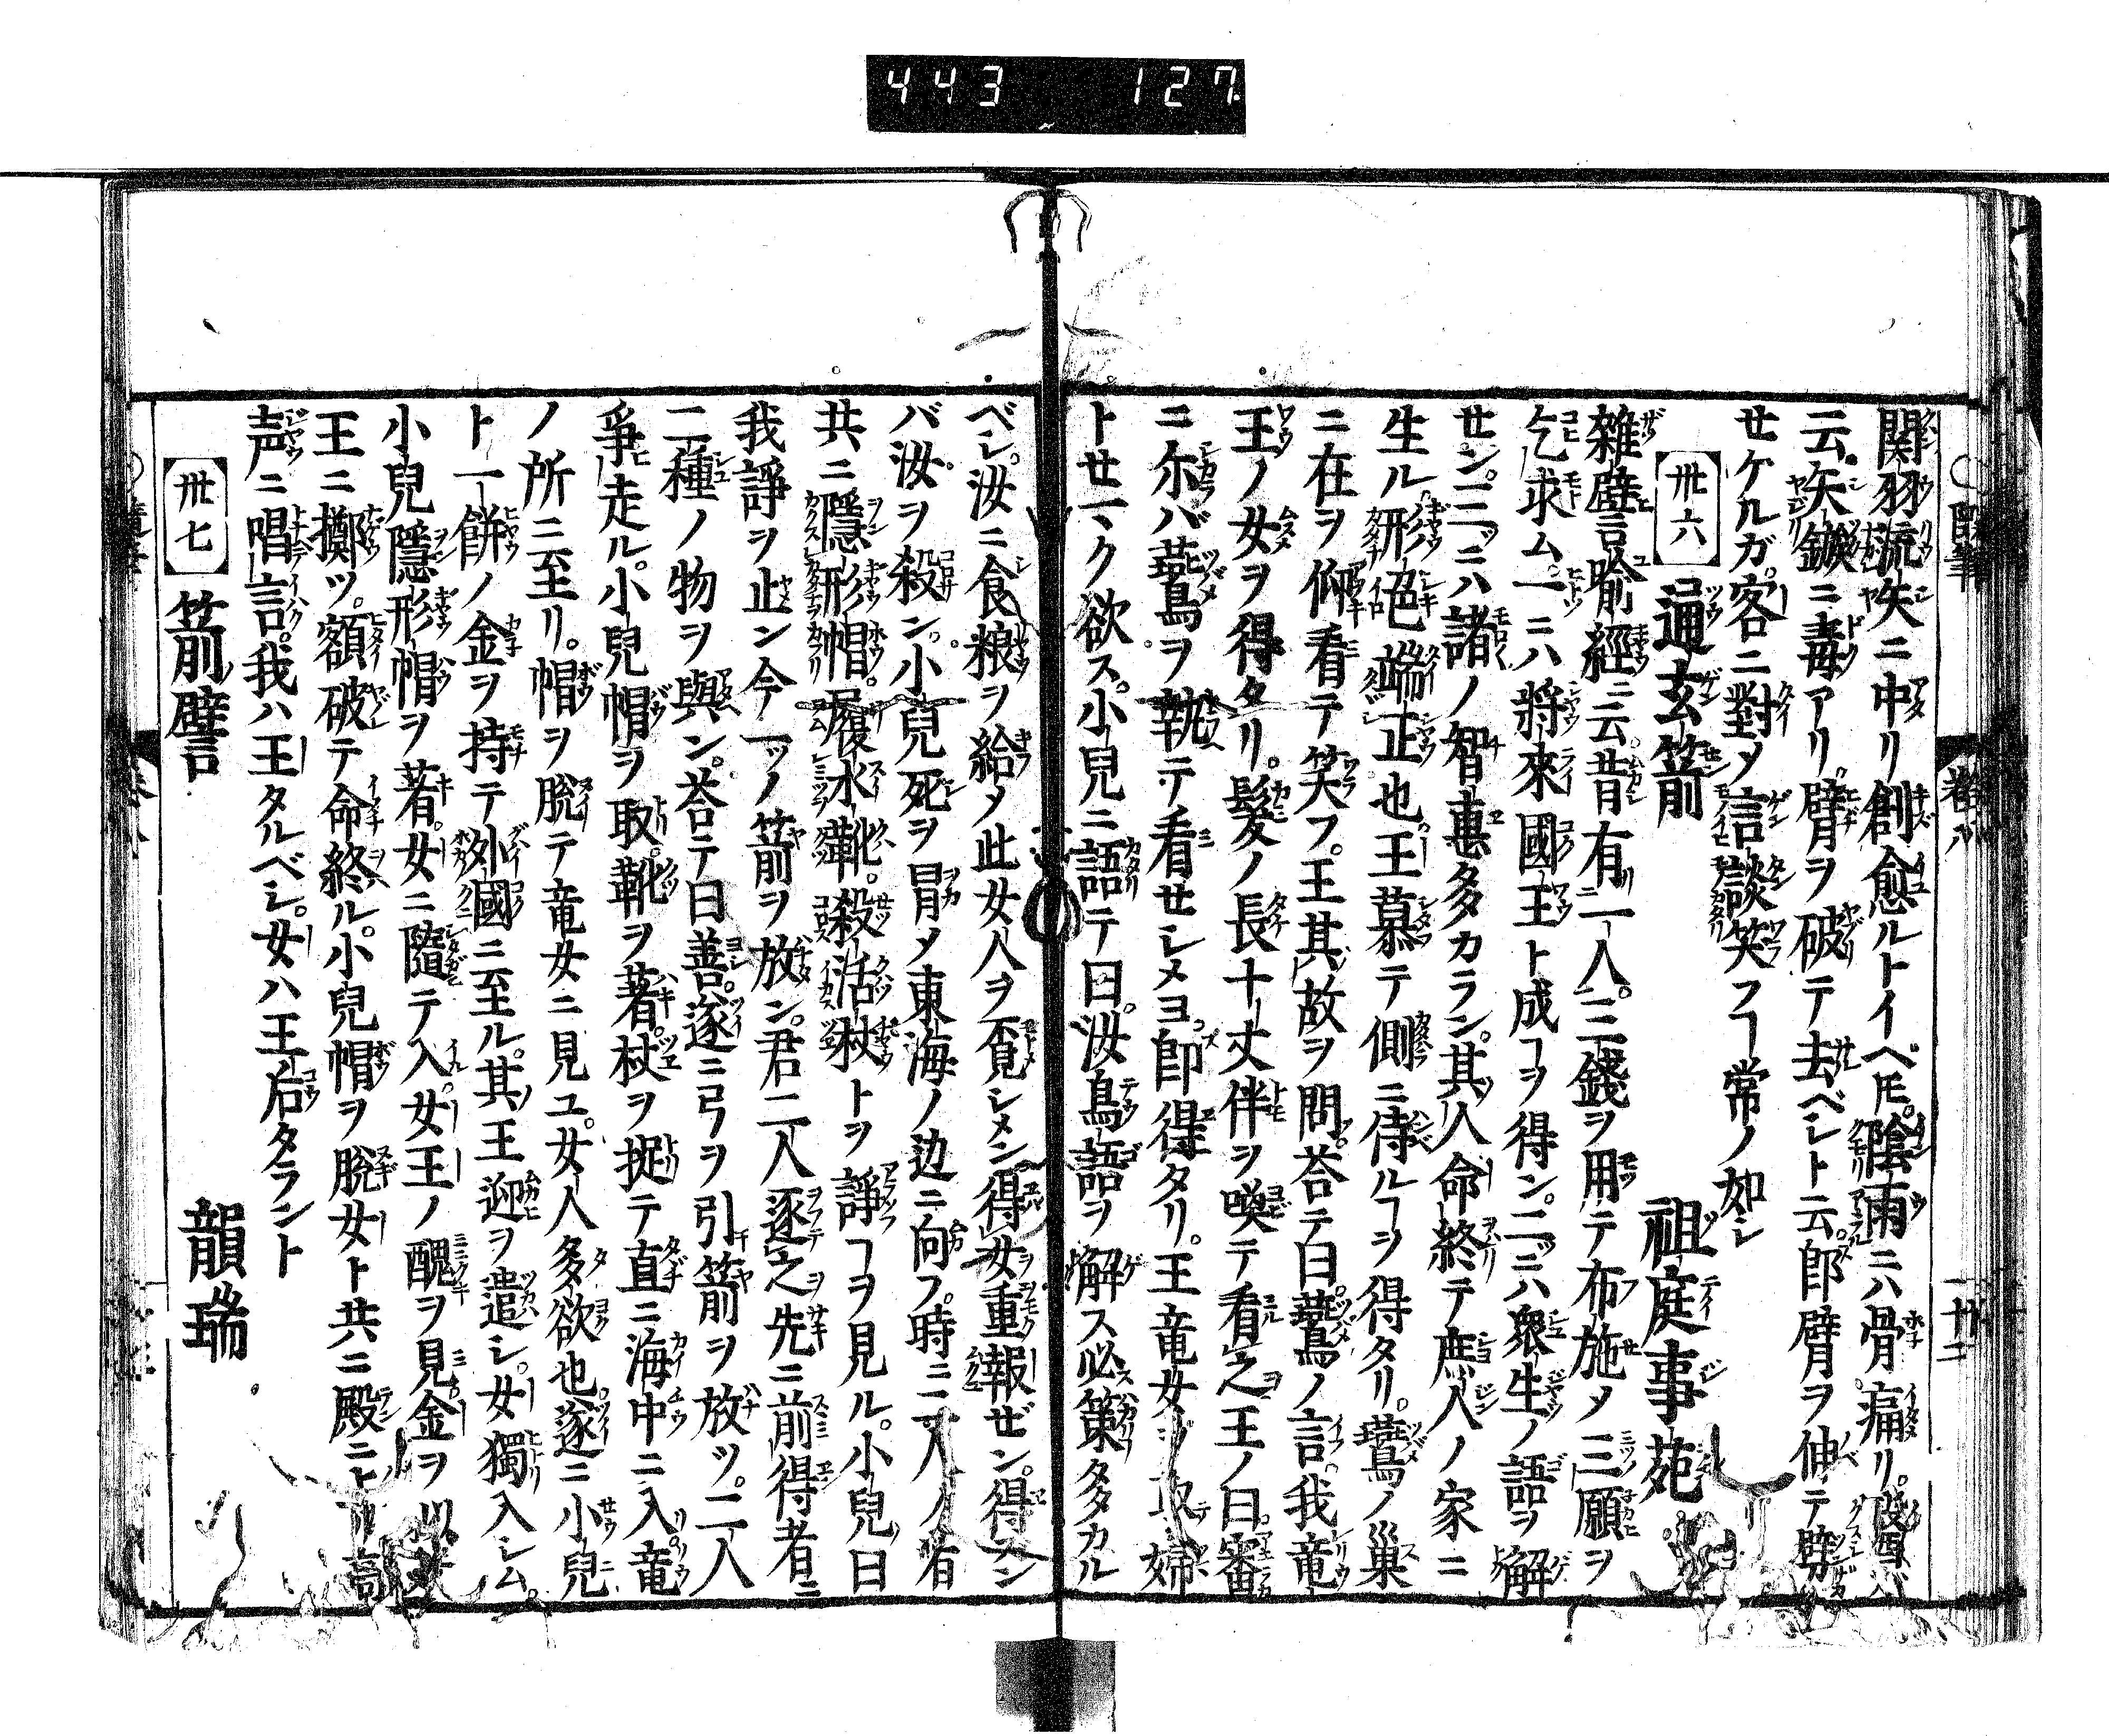 443 127
関羽流矢ニ中リ創愈ルトイヘ𪜈陰雨ニハ骨痛リ
云矢鏃ニ毒アリ臂ヲ破テ去ベシト云即臂ヲ伸テ劈
セケルガ客ニ對メ言談笑フヿ常ノ如シ
卅六 通玄箭 祖庭事苑
雜譬喩經ニ云昔有一人三錢ヲ用テ布施メ三願ヲ
乞求ム一ニハ將來國王ト成ヿヲ得ン二ツニハ衆生ノ語ヲ解
セン三ツニハ諸ノ智惠多カラン其人命終テ庶人ノ家ニ
生ル形色端正也王慕テ側ニ侍ルヿヲ得タリ鷰ノ巣
ニ在ヲ仰看テ笑フ王其故ヲ問荅テ曰鷰ノ言我竜
王ノ女ヲ得タリ髮ノ長十丈伴ヲ喚テ看之王ノ曰審
ニ尓バ鷰ヲ執テ看セシメヨ即得タリ王竜女ヲ取テ婦
トセマク欲ス小兒ニ語テ曰汝鳥語ヲ解ス必策多カル
ベシ汝ニ食粮ヲ給メ此女人ヲ覔シメン得女重報ゼン得ズン
バ汝ヲ殺ン小兒死ヲ冒メ東海ノ边ニ向フ時ニ二人ノ有
共ニ隱形帽履水靴殺活杖トヲ諍フヿヲ見ル小兒曰
我諍ヲ止ン今一ツノ箭ヲ放ン君二人逐之先ニ前得者ニ
二種ノ物ヲ與ン荅テ曰善逐ニ弓ヲ引箭ヲ放ツ二人
爭走ル小兒帽ヲ取靴ヲ著杖ヲ捉テ直ニ海中ニ入竜
ノ所ニ至リ帽ヲ脫テ竜女ニ見ユ女人多欲也遂ニ小兒
ト一餅ノ金ヲ持テ外國ニ至ル其王迎ヲ遣シ女獨入シム
小兒隱形帽ヲ著女ニ隨テ入女王ノ醜ヲ見金ヲ以
王ニ擲ツ額破テ命終ル小兒帽ヲ脫女ト共ニ殿ニ上リ高
声ニ唱言我ハ王タルベシ女ハ王后タラント
卅七 箭譬 韻瑞